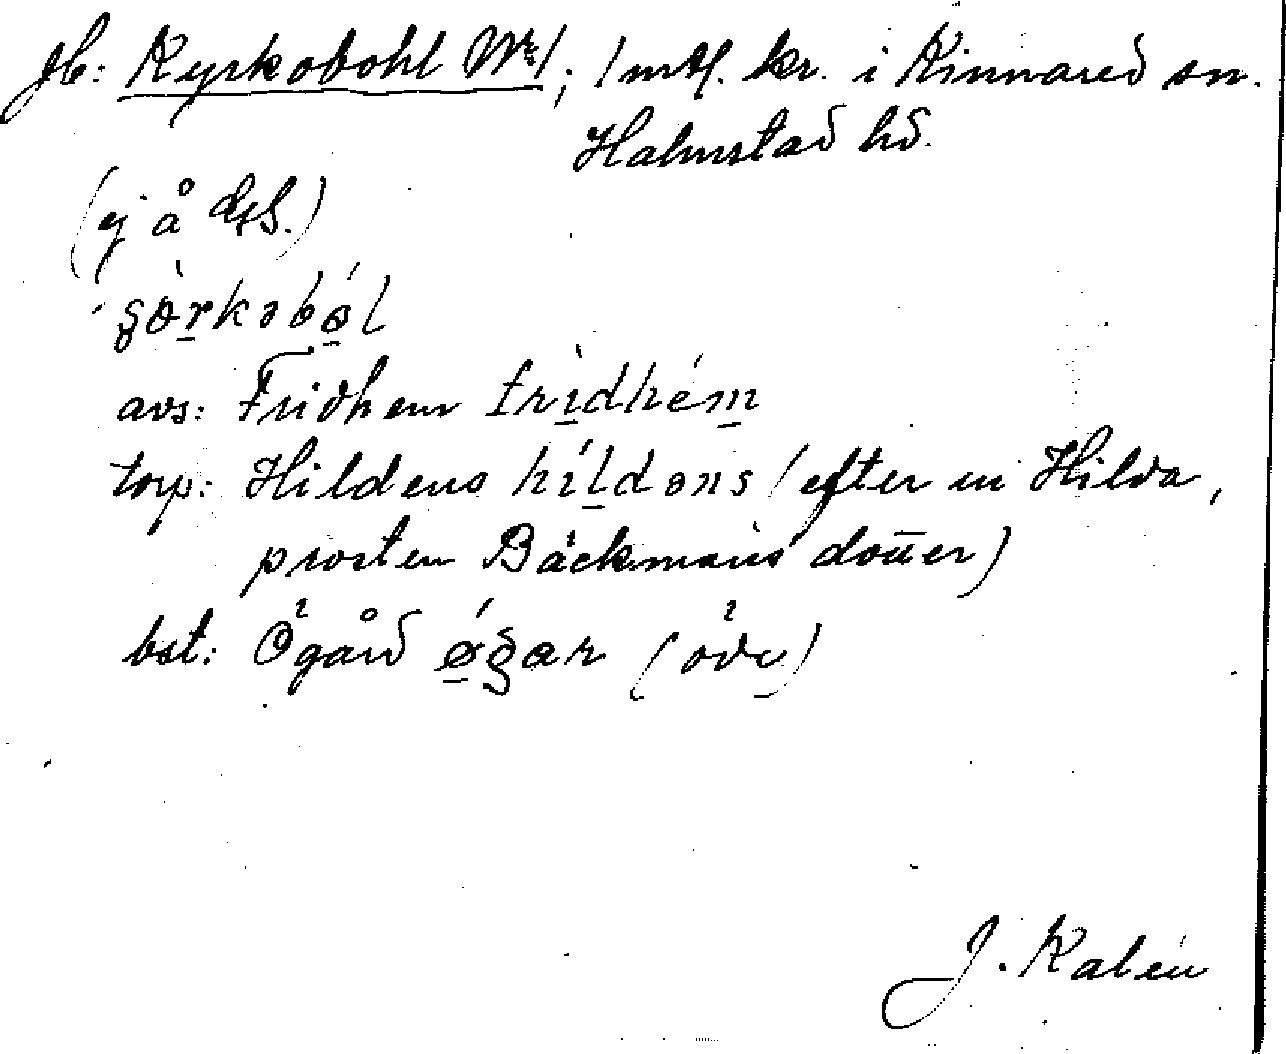 Jb: Kyrkobohl N:1; 1 mtl. kr. i Kinnared sn.
Halmstad hd.
(ej å GS.)
avs: Fridhem frìdhém
torp: Hildens híldəns (efter en Hilda,
prosten Bäckmans dotter)
bst: Ögård (öde)
J. Kalén